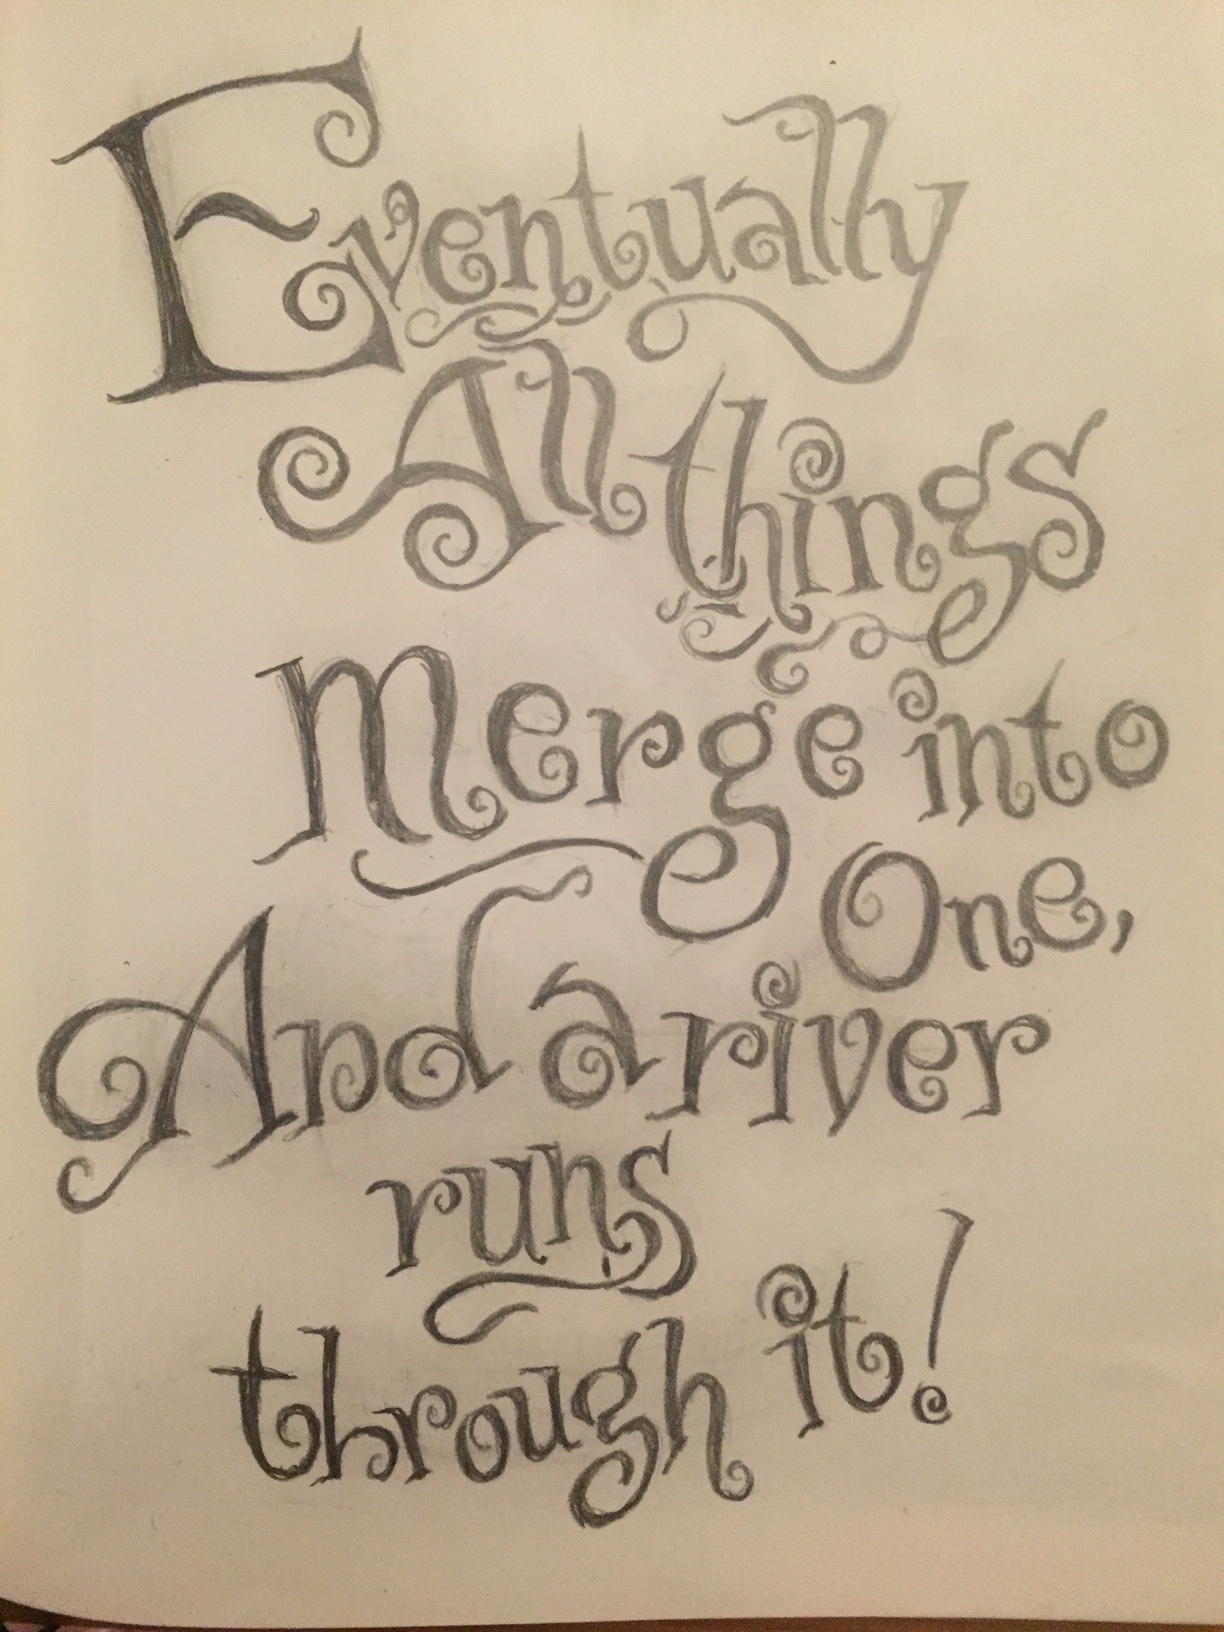 Eventually
All things
merge into
One,
And a river
runs
through it!